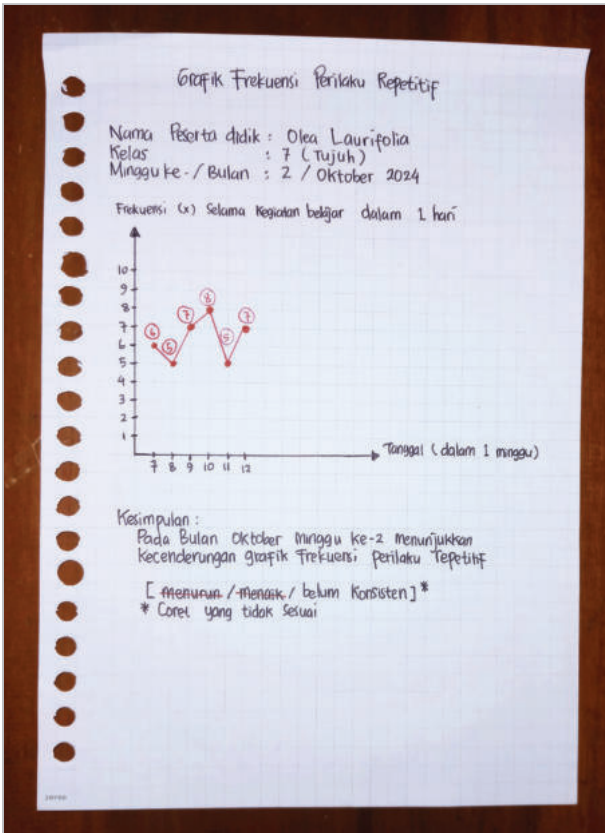 Grafik Frekuensi Perilaku Repetitif
Nama Peserta didik : Olea Laurifolia
Kelas : 7 (Tujuh)
Minggu ke-/Bulan : 2 / Oktober 2024
Frekuensi (x) Selama Kegiatan belajar dalam 1 hari
10
9
8
7
6
5
4
3
2
1
6
5
7
8
5
7
7 8 9 10 11 12
Tanggal (dalam 1 minggu)
Kesimpulan :
Pada Bulan Oktober minggu ke-2 menunjukkan
Kecenderungan grafik Frekuensi perilaku repetitif
[ menurun / menaik / belum Konsisten ]*
* Coret yang tidak Sesuai